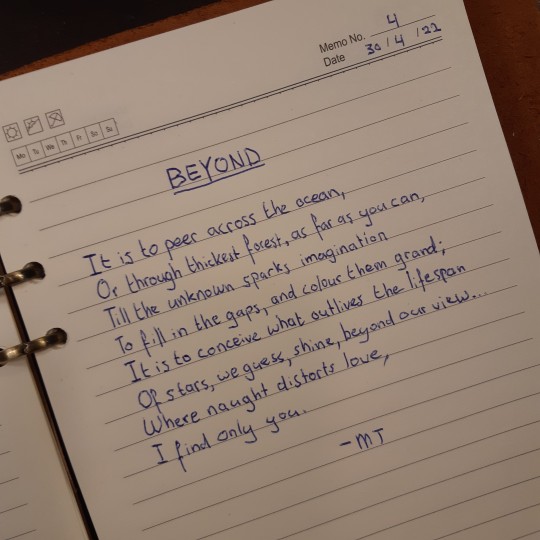 Memo No. 4
Date 30/4/22
Mo Tu We Th Fr Sa Su
BEYOND
It is to peer across the ocean,
Or through thickest forest, as far as you can,
Till the unknown sparks imagination
To fill in the gaps, and colour them grand;
It is to conceive what outlives the lifespan
Of stars, we guess, shine, beyond our view...
Where naught distorts love,
I find only you.
-MJ